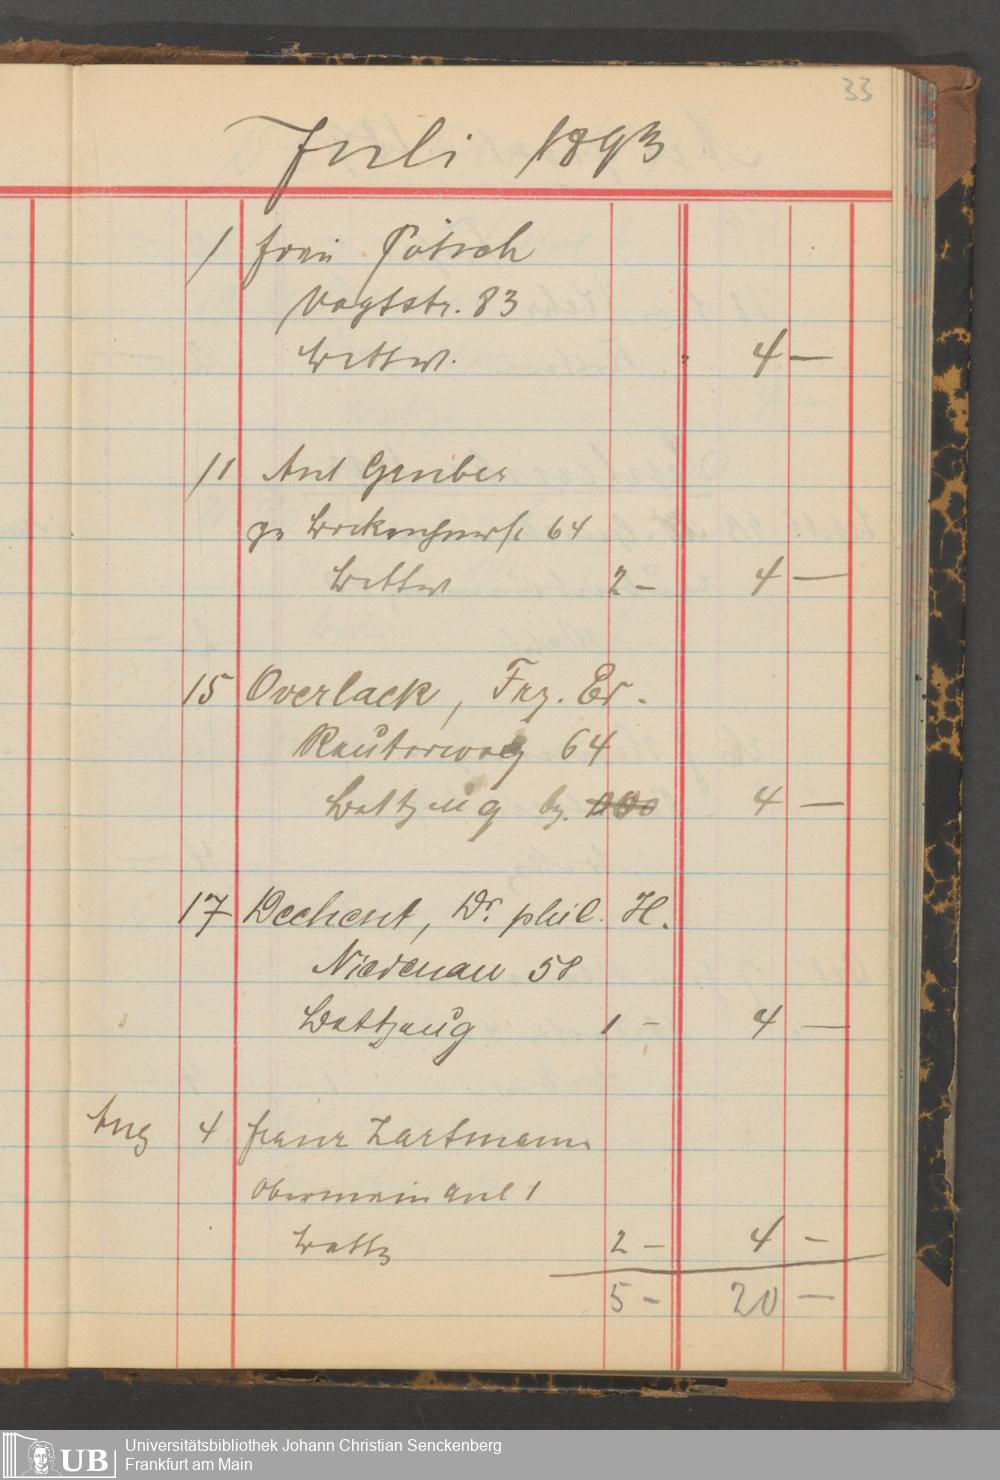 33
Juli 1893
1 Frau Pötsch
Vogtstr. 83
4 —
11 Ant Gruber
64
2 — 4 —
15 Overlack, Frz. Er.
Reuterweg 64
Bettzeug 4 —
17 Dechent, Dr. phil. H.
Niedenau 58
Bettzeug 1 — 4 —
Aug 4 Franz Hartmann
Obermain Anl 1
Bettz 2 — 4 —
5 — 20 —
UB
Universitätsbibliothek Johann Christian Senckenberg
Frankfurt am Main